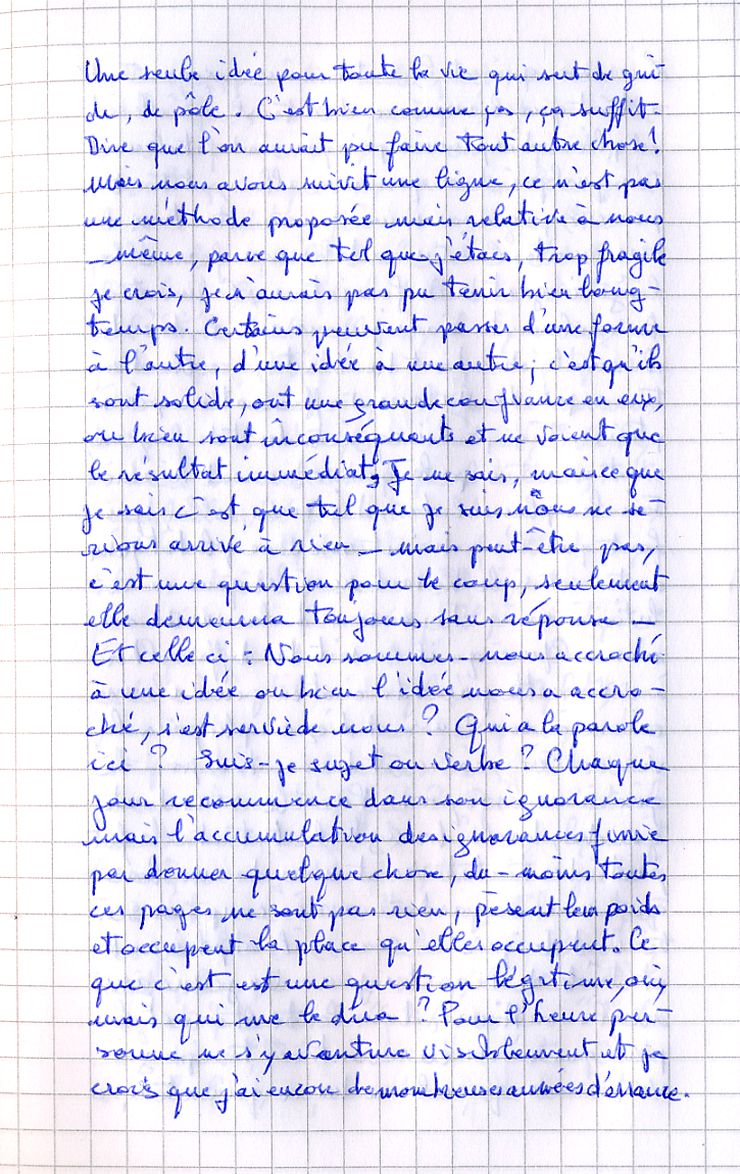 Une seule idée pour toute la vie qui sert de gui
de, de pôle. C'est bien comme ça, ça suffit.
Dire que l'on aurait pu faire tout autre chose!
Mais nous avons suivit une ligne, ce n'est pas
une méthode proposée mais relative à nous
- même, parce que tel que j'étais, trop fragile
je crois, je n'aurais pas pu tenir bien long-
temps. Certains peuvent passer d'une forme
à l'autre, d'une idée à une autre; c'est qu'ils
sont solide, ont une grande confiance en eux,
ou bien sont inconséquents et ne voient que
le résultat immédiat. Je ne sais, mais ce que
je sais c'est que tel que je suis nous ne se-
rions arrivé à rien - mais peut-être pas,
c'est une question pour le coup, seulement
elle demeurera toujours sans réponse -
Et celle ci : Nous sommes-nous accroché
à une idée ou bien l'idée nous a accro-
ché, s'est servie de nous ? Qui a la parole
ici ? Suis-je sujet ou verbe ? Chaque
jour recommence dans son ignorance
mais l'accumulation des ignorances finie
par donner quelque chose, du-moins toutes
ces pages ne sont pas rien, pèsent leur poids
et occupent la place qu'elles occupent. Ce
que c'est est une question légitime, oui,
mais qui me le dira ? Pour l'heure per-
sonne ne s'y aventure visiblement et je
crois que j'ai encore de nombreuses années d'errance.